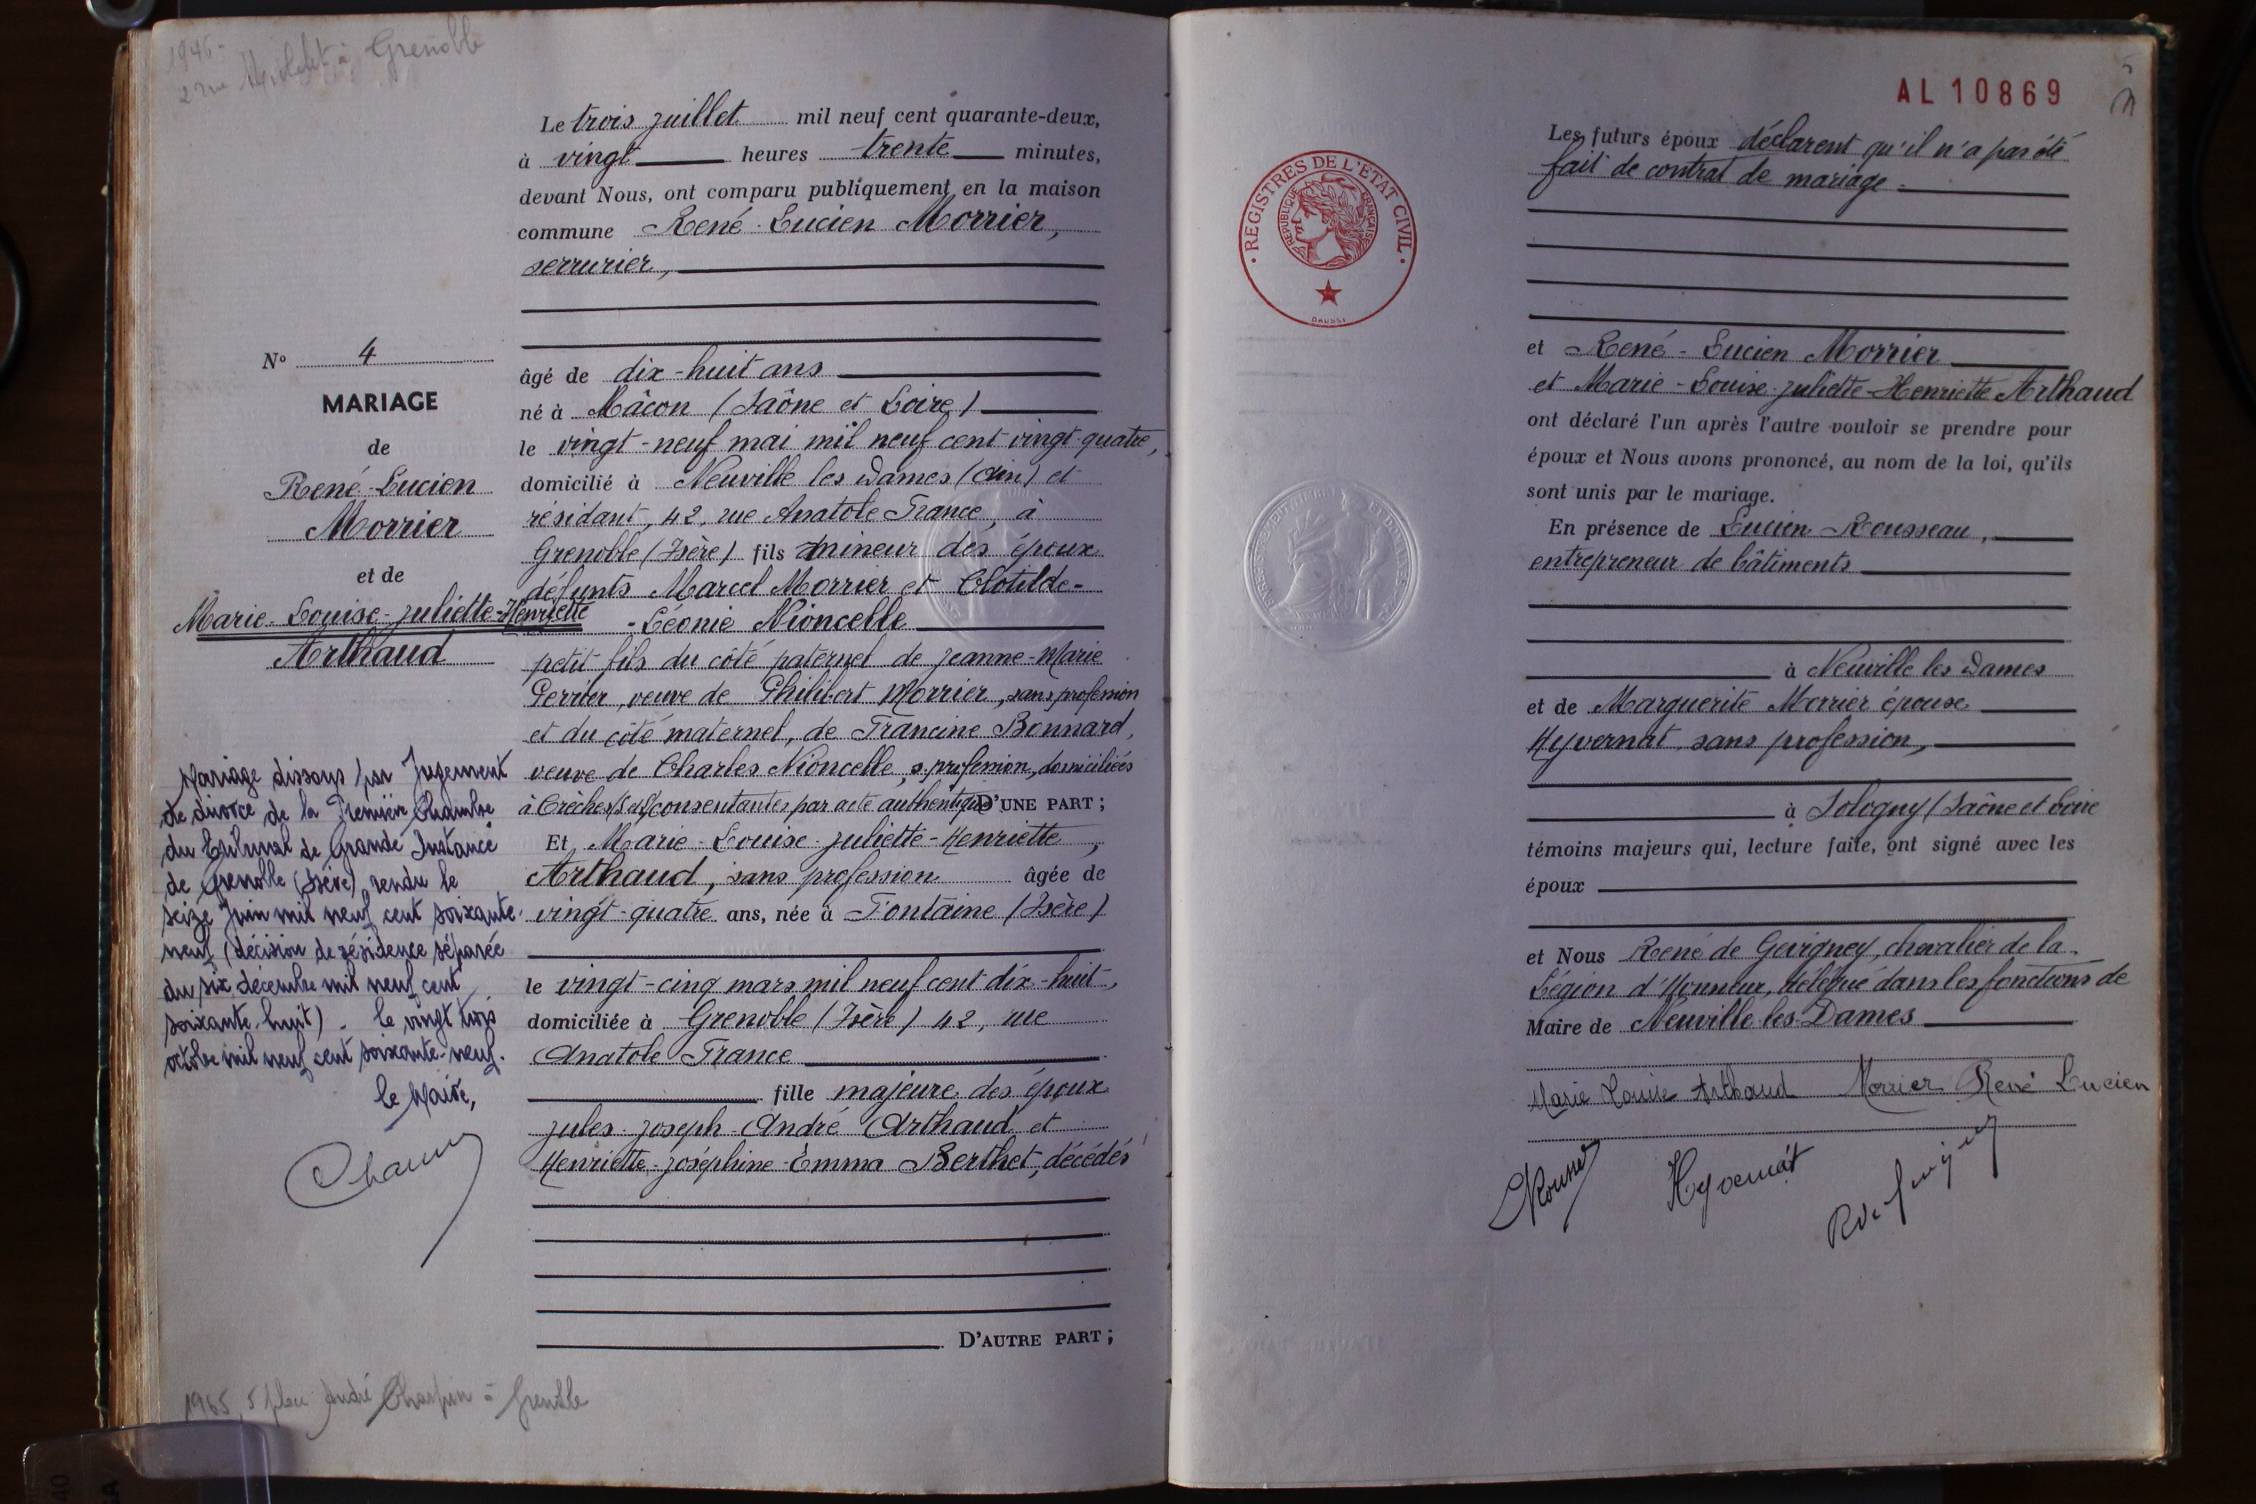 1945 -
2 rue à Grenoble
Le trois juillet mil neuf cent quarante-deux,
à vingt heures trente minutes,
devant Nous, ont comparu publiquement en la maison
commune René-Lucien Morrier,
serrurier,
âgé de dix-huit ans
né à Mâcon (Saône et Loire)
le vingt-neuf mai mil neuf cent vingt-quatre,
domicilié à Neuville les Dames (Ain) et
résidant, 42, rue Anatole France, à
Grenoble (Isère) fils mineur des époux
défunts Marcel Morrier et Clotilde-
-Léonie Nioncelle
petit fils du côté paternel de Jeanne-Marie
Perrier, veuve de Philibert Morrier, sans profession
et du côté maternel, de Francine Bonnard,
veuve de Charles Nioncelle, s. profession, domiciliées
à Crèches (S et L) consentantes par acte authentique D'UNE PART ;
Et Marie-Louise-Juliette-Henriette,
Arthaud, sans profession âgée de
vingt-quatre ans, née à Fontaine (Isère)
le vingt-cinq mars mil neuf cent dix-huit,
domiciliée à Grenoble (Isère) 42, rue
Anatole France
fille majeure des époux
Jules-Joseph-André Arthaud et
Henriette-Joséphine-Emma Berthet, décédés
D'AUTRE PART ;
N° 4
MARIAGE
de
René-Lucien
Morrier
et de
Marie-Louise-Juliette-Henriette
Arthaud
Mariage dissous par Jugement
de divorce de la Première Chambre
du Tribunal de Grande Instance
de Grenoble (Isère) rendu le
seize Juin mil neuf cent soixante-
neuf (décision de résidence séparée
du six décembre mil neuf cent
soixante-huit). le vingt trois
octobre mil neuf cent soixante-neuf.
le Maire,
1965, 5 place André Charpin à Grenoble
AL 10869
5
REGISTRES DE L'ETAT CIVIL
REPUBLIQUE FRANCAISE
Les futurs époux déclarent qu'il n'a pas été
fait de contrat de mariage.
et René-Lucien Morrier
et Marie-Louise-Juliette-Henriette Arthaud
ont déclaré l'un après l'autre vouloir se prendre pour
époux et Nous avons prononcé, au nom de la loi, qu'ils
sont unis par le mariage.
En présence de Lucien Rousseau,
entrepreneur de bâtiments
à Neuville les Dames
et de Marguerite Morrier épouse
Hyvernat, sans profession,
à Sologny (Saône et Loire
témoins majeurs qui, lecture faite, ont signé avec les
époux
et Nous René de Gevigney, chevalier de la
Légion d'Honneur, délégué dans les fonctions de
Maire de Neuville les Dames
Marie Louise Arthaud Morrier René Lucien
Hyvernat